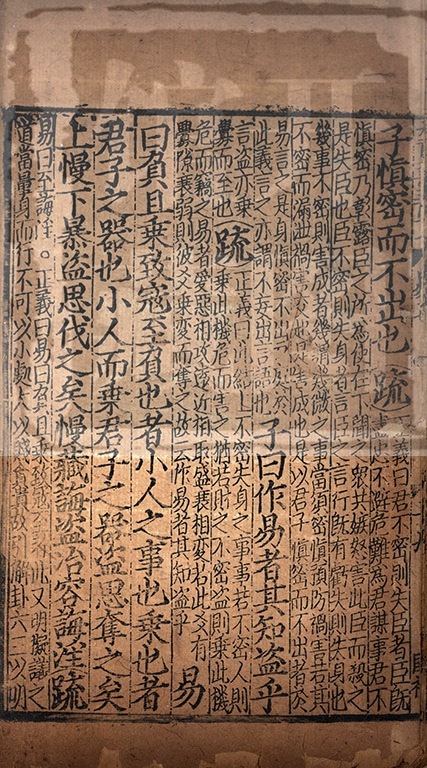 子慎密而不出也 疏 正義曰君不密則失臣者臣既
盡忠不避危難為君謀事君不
慎密乃彰露臣之所為使在下聞之衆共嫉怒害此臣而殺之
是失臣也臣不密則失身者言臣之言行既有虧失則失身也
幾事不密則害成者幾謂幾微之事當須密慎預防禍害若其
不密而漏泄禍害交起是害成也是以君子慎密而不出者於
易言之是身慎密不出戶庭於
此義言之亦謂不妄出言語也
子曰作易者其知盜乎
言盜亦乘
釁而至也
疏 正義曰此結上不密失身之事事若不密人則
乘此機危而害之猶若財之不密盜則乘此機
危而竊之易者愛惡相攻遠近相取盛衰相變若此爻有
釁隙衰弱則彼爻乘變而奪之故云作易者其知盜乎
易
曰負且乘致寇至負也者小人之事也乘也者
君子之器也小人而乘君子之器盜思奪之矣
上慢下暴盜思伐之矣慢藏誨盜冶容誨淫 疏
易曰至誨淫。正義曰易曰負且乘致寇至者此又明擬議之
道當量身而行不可以小處大以賤貪貴故引解卦六三以明